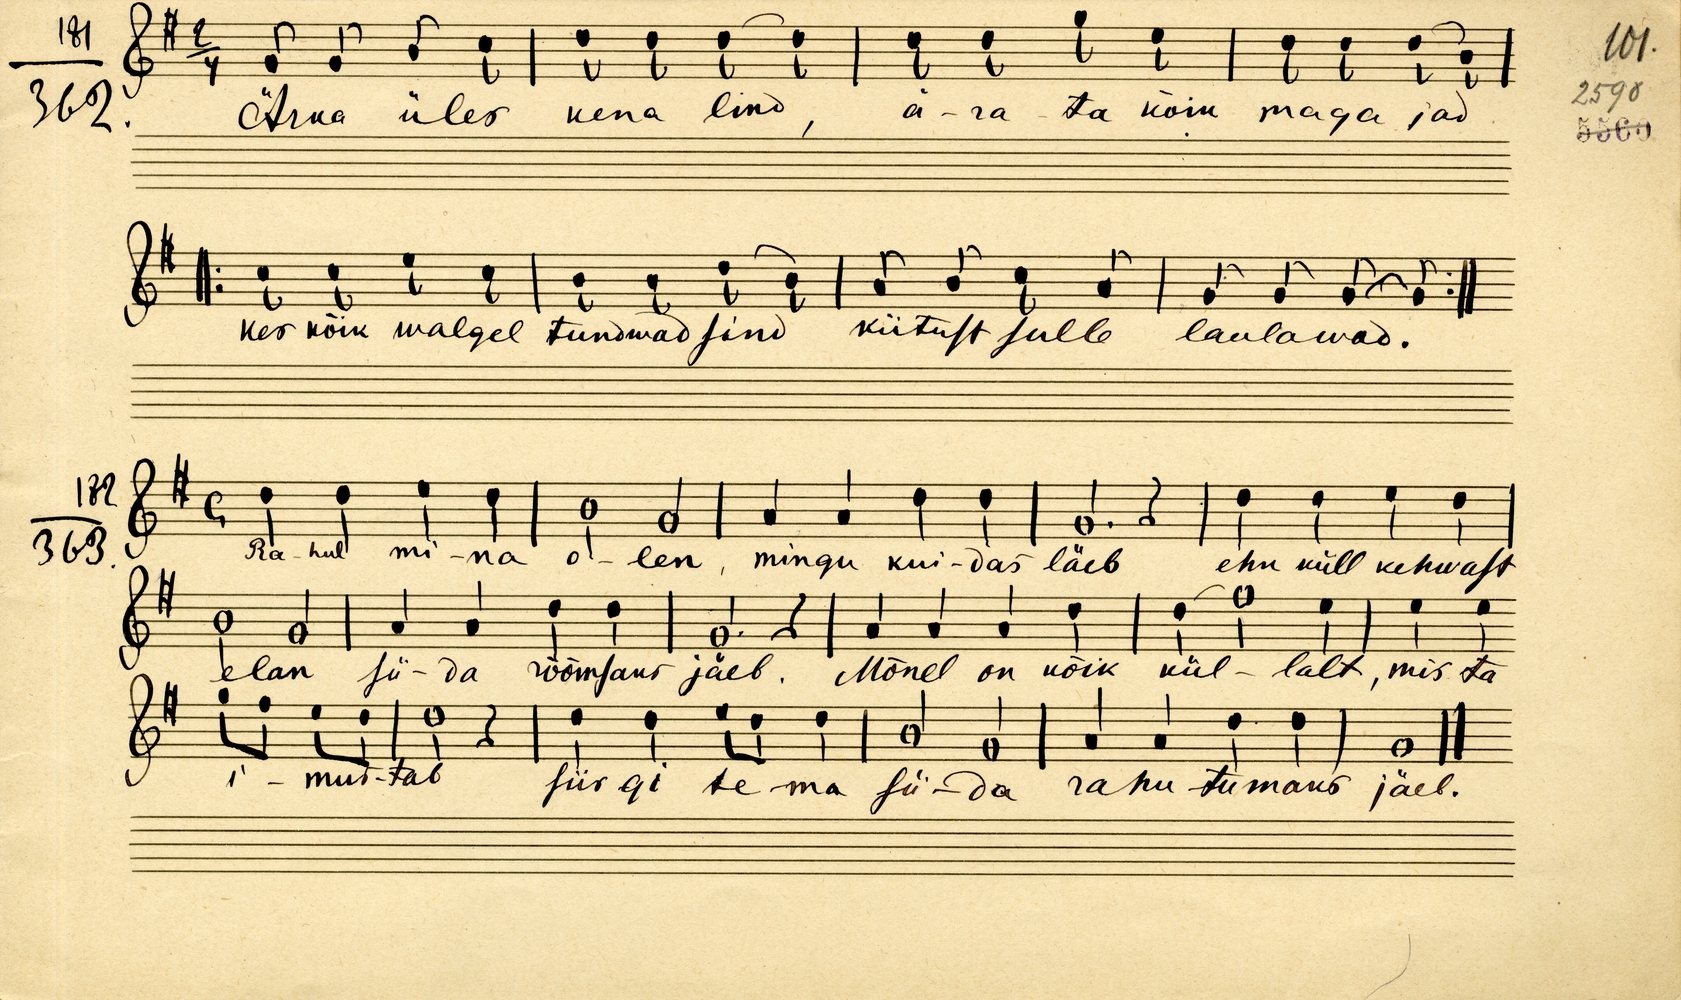 181
362.
101.
2590
5560
2/4
Ärka üles kena lind, ä-ra-ta kõik maga jad
kes kõik walgel tundwad sind kiitust sulle laulawad.
182
363.
C
Ra-hul mi-na o-len, mingu kui-das läeb ehk küll kehwast
elan sü-da rõõmsaks jäeb. Mõnel on kõik kül-lalt, mis ta
i-mus-tab siis gi te-ma sü-da rahu-tumaks jäeb.